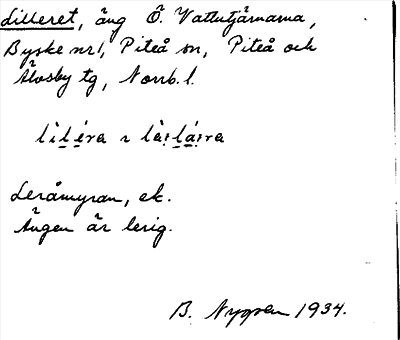 Lilleret, äng Ö. Vattutjärnarna,
Byske nr 1, Piteå sn, Piteå och
Älvsby tg, Norrb. l.
Leråmyran, ek.
Ängen är lerig.
B. Nygren 1934.